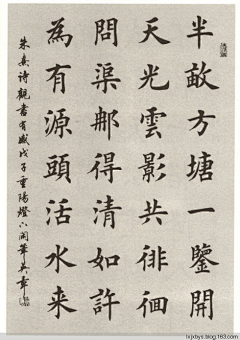 半畝方塘一鑒開
天光雲影共徘徊
問渠那得清如許
為有源頭活水来
朱熹诗觀書有感戊子重陽燈下閑筆英章
lxjxbys.blog.163.com